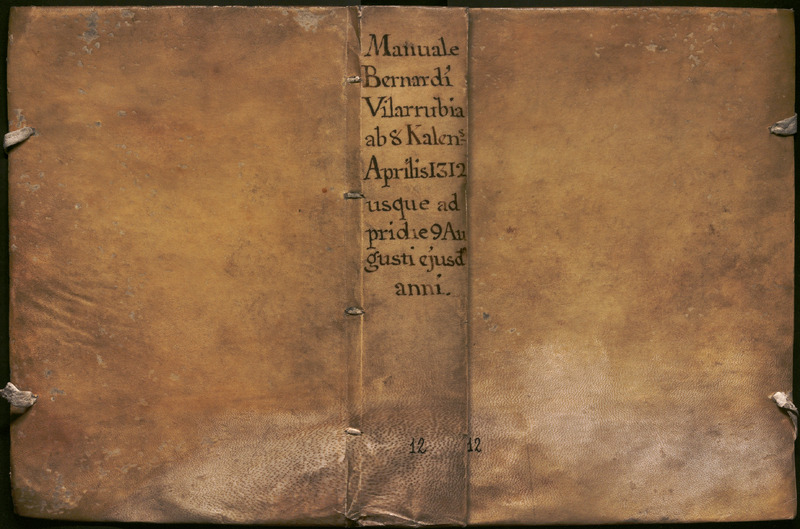 Manuale
Bernardi
Vilarrubia
ab 8 Kalens
Aprilis 1312
usque ad
pridie 9 Au
gusti ejusd
anni.
12 12